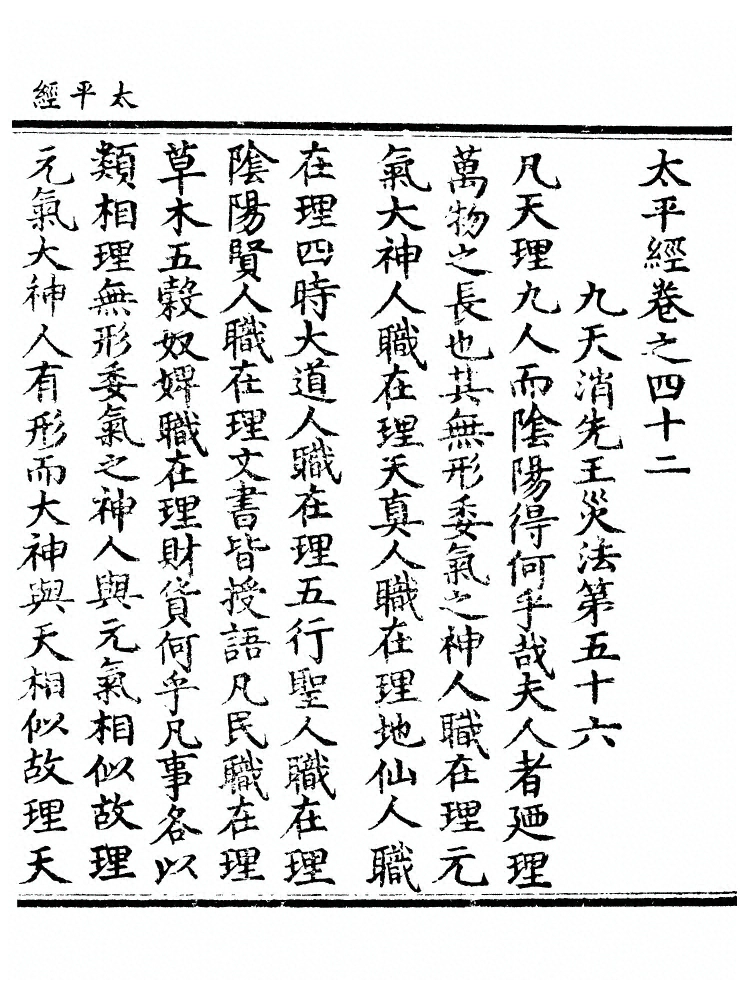 太平經
太平經卷之四十二
九天消先王災法第五十六
凡天理九人而陰陽得何乎哉夫人者廼理
萬物之長也其無形委氣之神人職在理元
氣大神人職在理天真人職在理地仙人職
在理四時大道人職在理五行聖人職在理
陰陽賢人職在理文書皆授語凡民職在理
草木五穀奴婢職在理財貨何乎凡事各以
類相理無形委氣之神人與元氣相似故理
元氣大神人有形而大神與天相似故理天